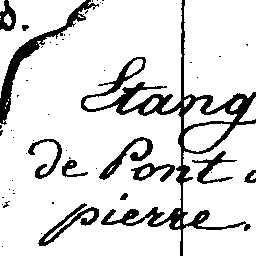 Stang
de Pont a
pierre.